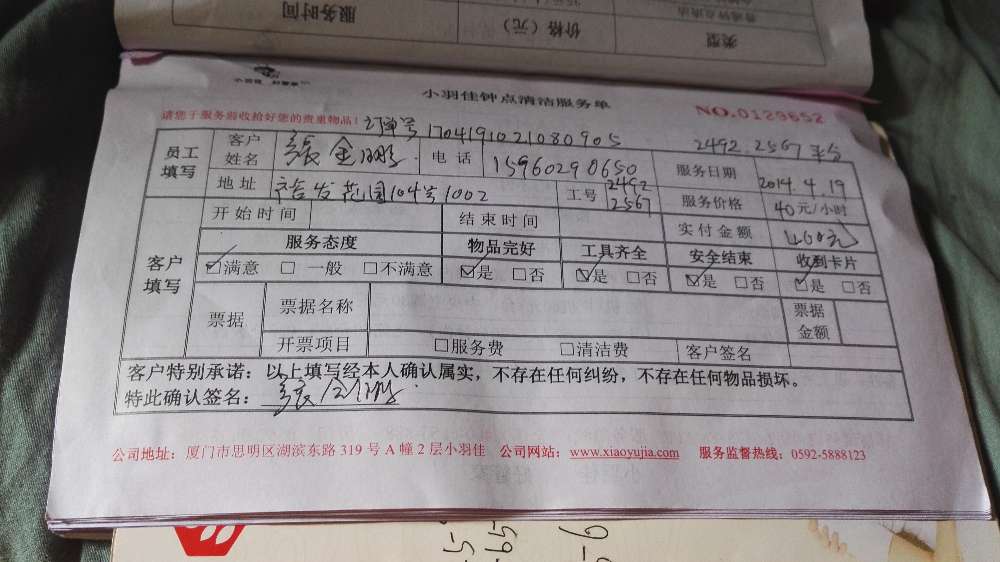 服务时间
价格（元）
类型
小羽佳钟点清洁服务单
请您于服务前收拾好您的贵重物品！ 订单号 1704191021080905
NO.0129652
2492.2567 平台
员工填写 客户姓名 張金鹏 电话 15960290650 服务日期 2014.4.19
地址 裕发花园104号1002 工号 2492 2567 服务价格 40元/小时
客户填写 开始时间 结束时间 实付金额 160元
服务态度 物品完好 工具齐全 安全结束 收到卡片
☑满意 □一般 □不满意 ☑是 □否 ☑是 □否 ☑是 □否 ☑是 □否
票据 票据名称 票据金额
开票项目 □服务费 □清洁费 客户签名
客户特别承诺：以上填写经本人确认属实，不存在任何纠纷，不存在任何物品损坏。
特此确认签名： 張金鹏
公司地址：厦门市思明区湖滨东路 319 号 A 幢 2 层小羽佳 公司网站：www.xiaoyujia.com 服务监督热线：0592-5888123